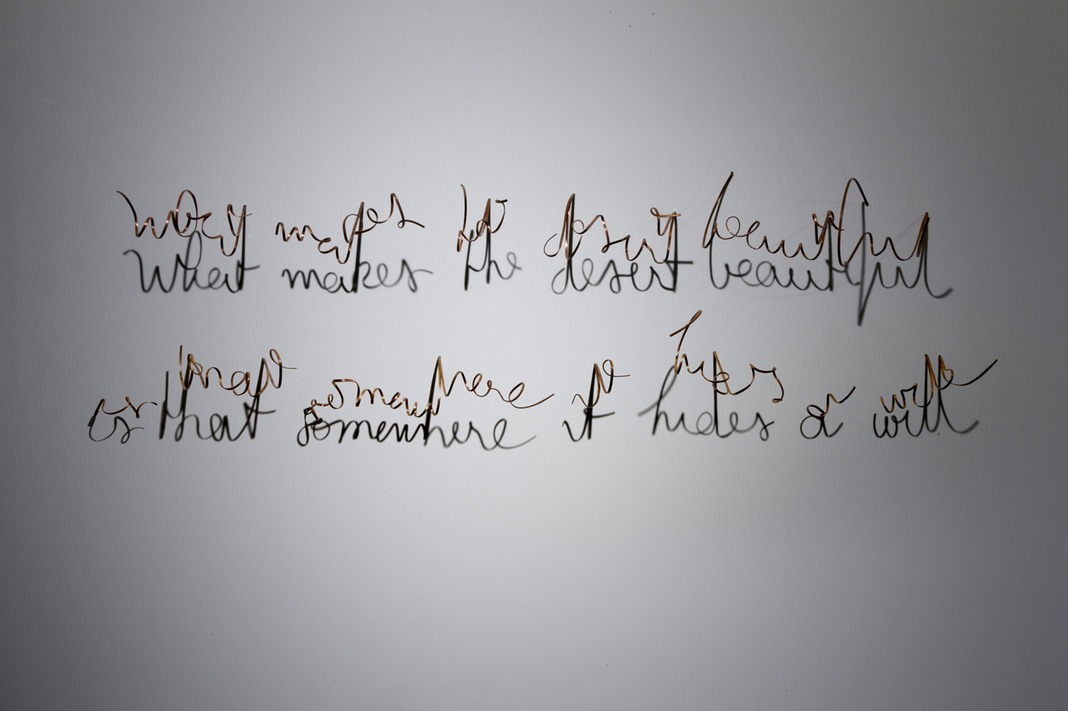 What makes the desert beautiful
is that somewhere it hides a well